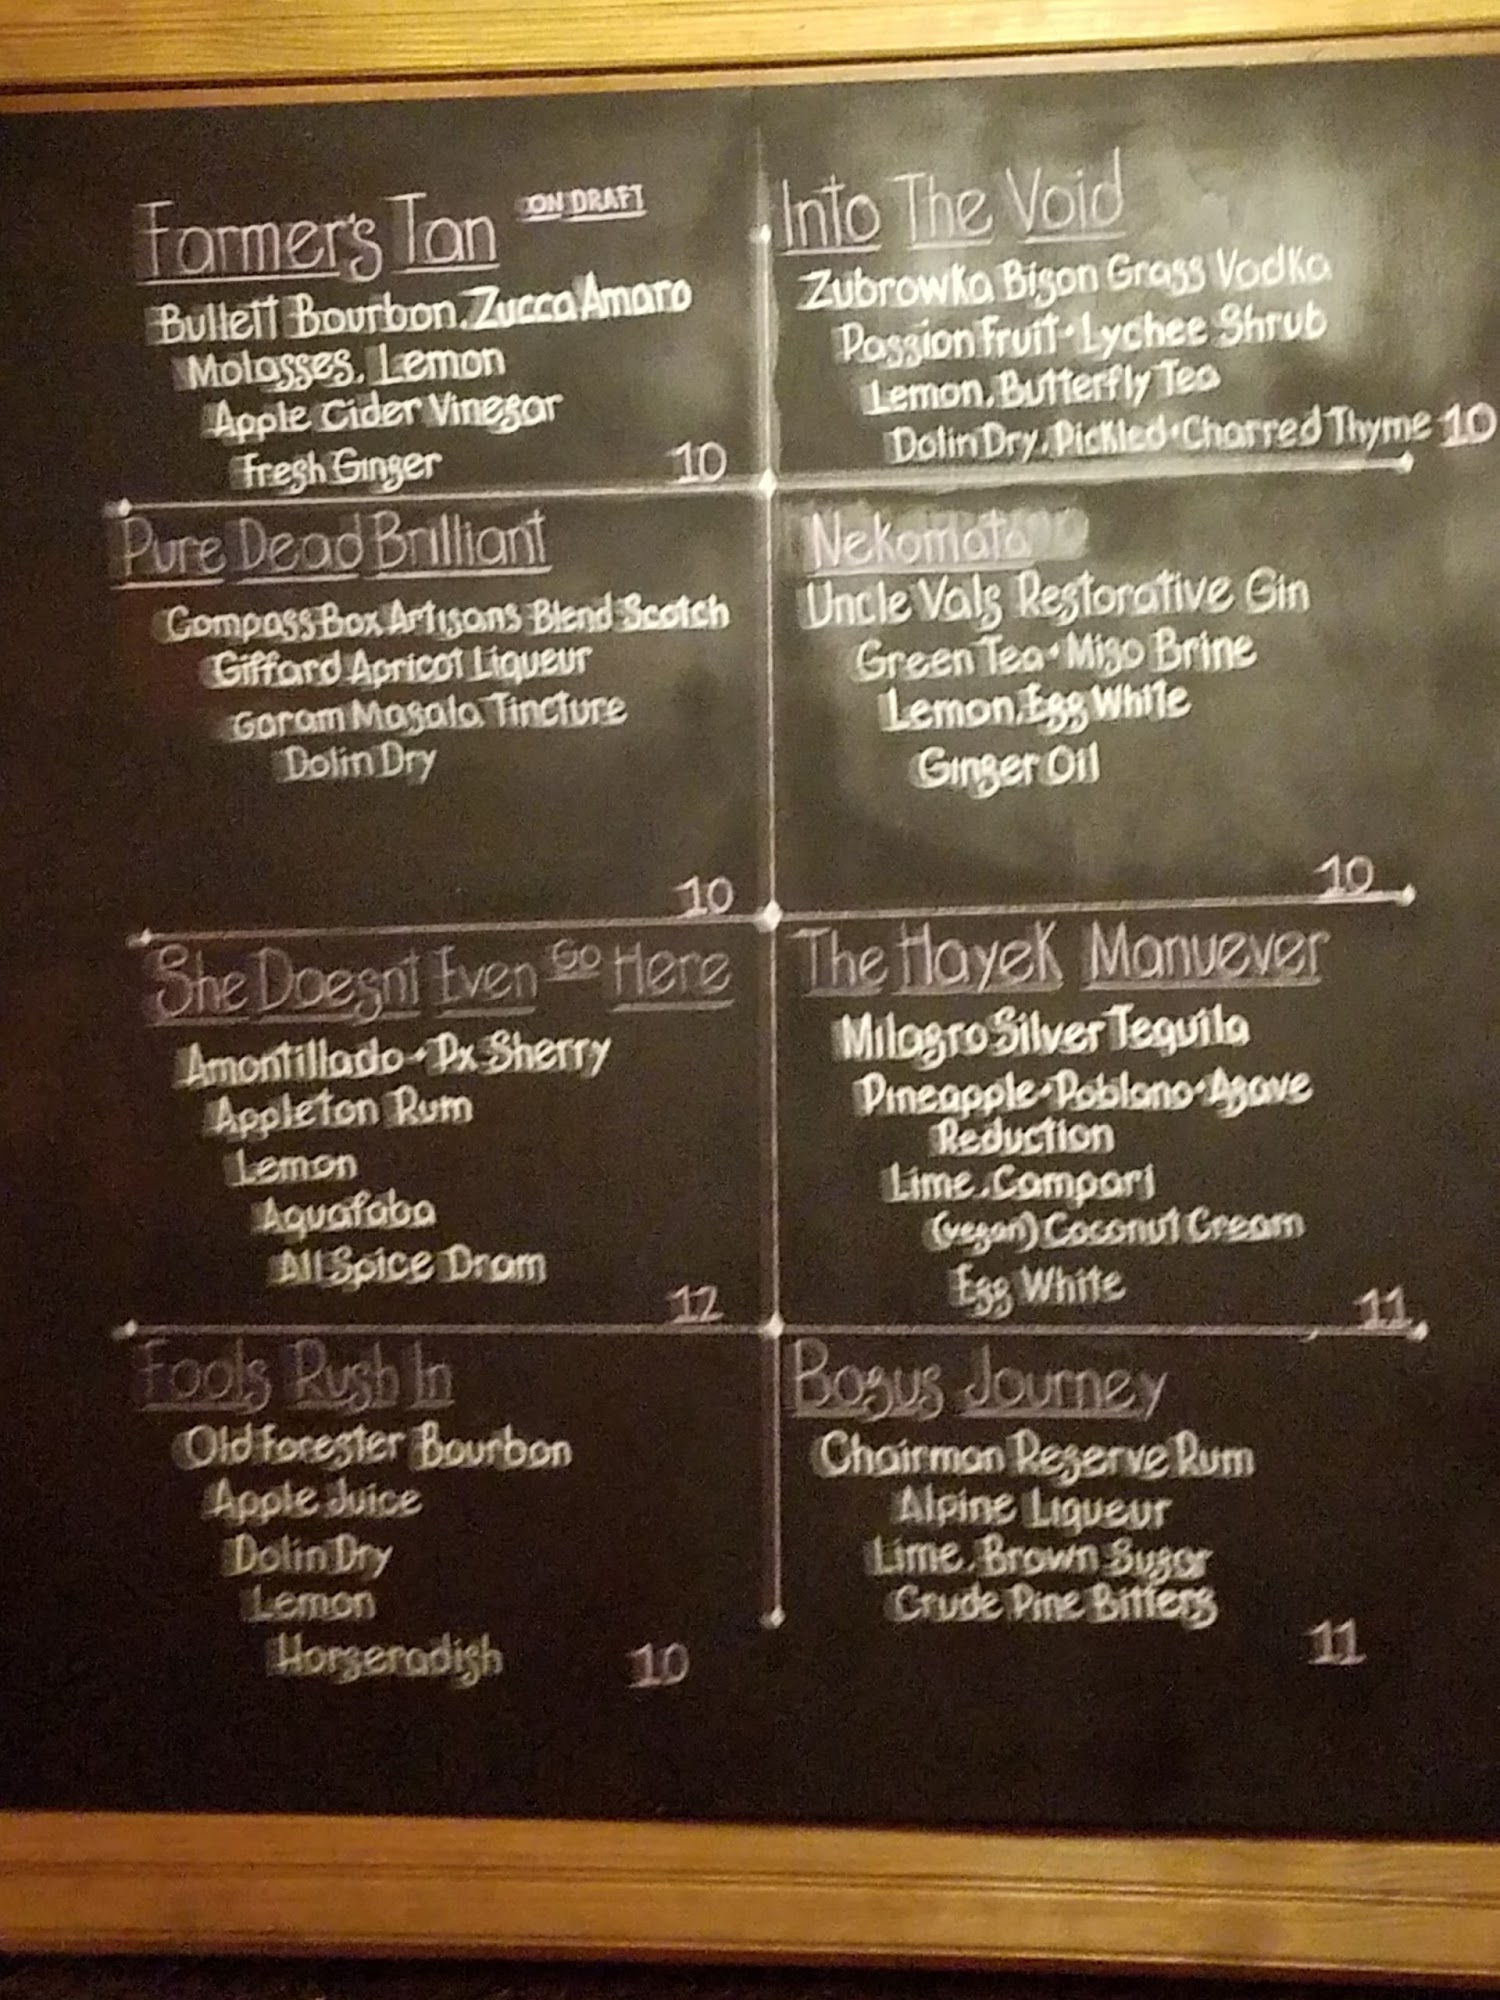 Farmer's Tan ON DRAFT
Bulleit Bourbon, Zucca Amaro
Molasses, Lemon
Apple Cider Vinegar
Fresh Ginger 10
Into The Void
Zubrowka Bison Grass Vodka
Passion Fruit • Lychee Shrub
Lemon, Butterfly Tea
Dolin Dry, Pickled • Charred Thyme 10
Pure Dead Brilliant
Compass Box Artisans Blend Scotch
Giffard Apricot Liqueur
Garam Masala Tincture
Dolin Dry
10
Nekomata
Uncle Vals Restorative Gin
Green Tea • Miso Brine
Lemon, Egg White
Ginger Oil
10
She Doesnt Even Go Here
Amontillado • Px Sherry
Appleton Rum
Lemon
Aquafaba
All Spice Dram
12
The Hayek Manuever
Milagro Silver Tequila
Pineapple • Poblano • Agave
Reduction
Lime, Campari
(vegan) Coconut Cream
Egg White
11
Fools Rush In
Old Forester Bourbon
Apple Juice
Dolin Dry
Lemon
Horseradish 10
Bogus Journey
Chairman Reserve Rum
Alpine Liqueur
Lime, Brown Sugar
Crude Pine Bitters
11